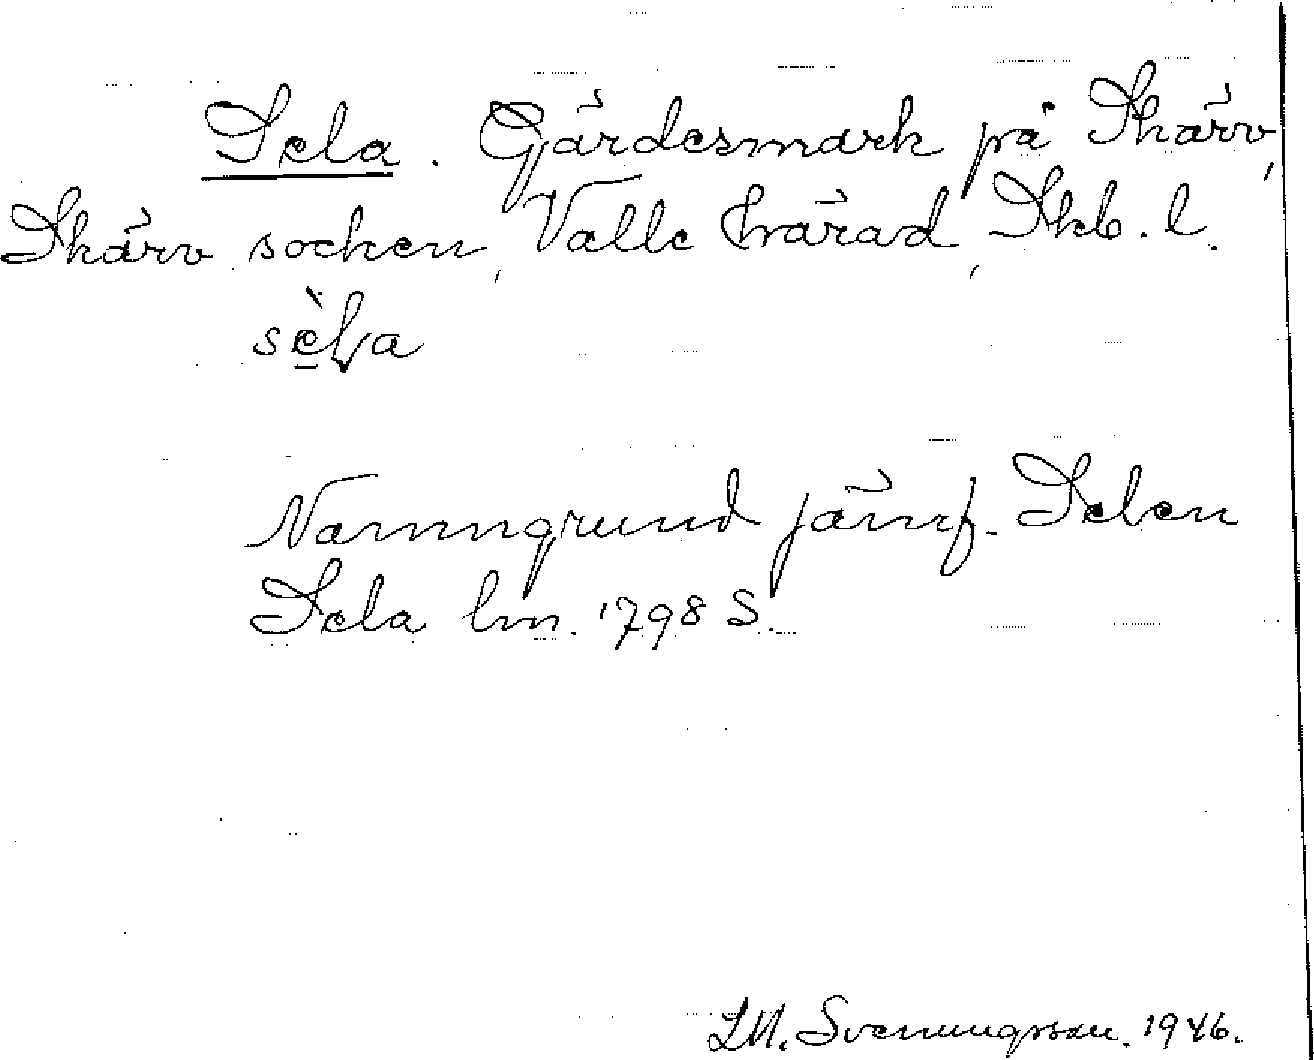 Sela. Gärdesmark på Skärv,
Skärv socken, Valle härad, Skb. l.
sèla
Namngrund jämf. Selen
Sela lm. 1798 S.
LM. Svenungsson. 1946.